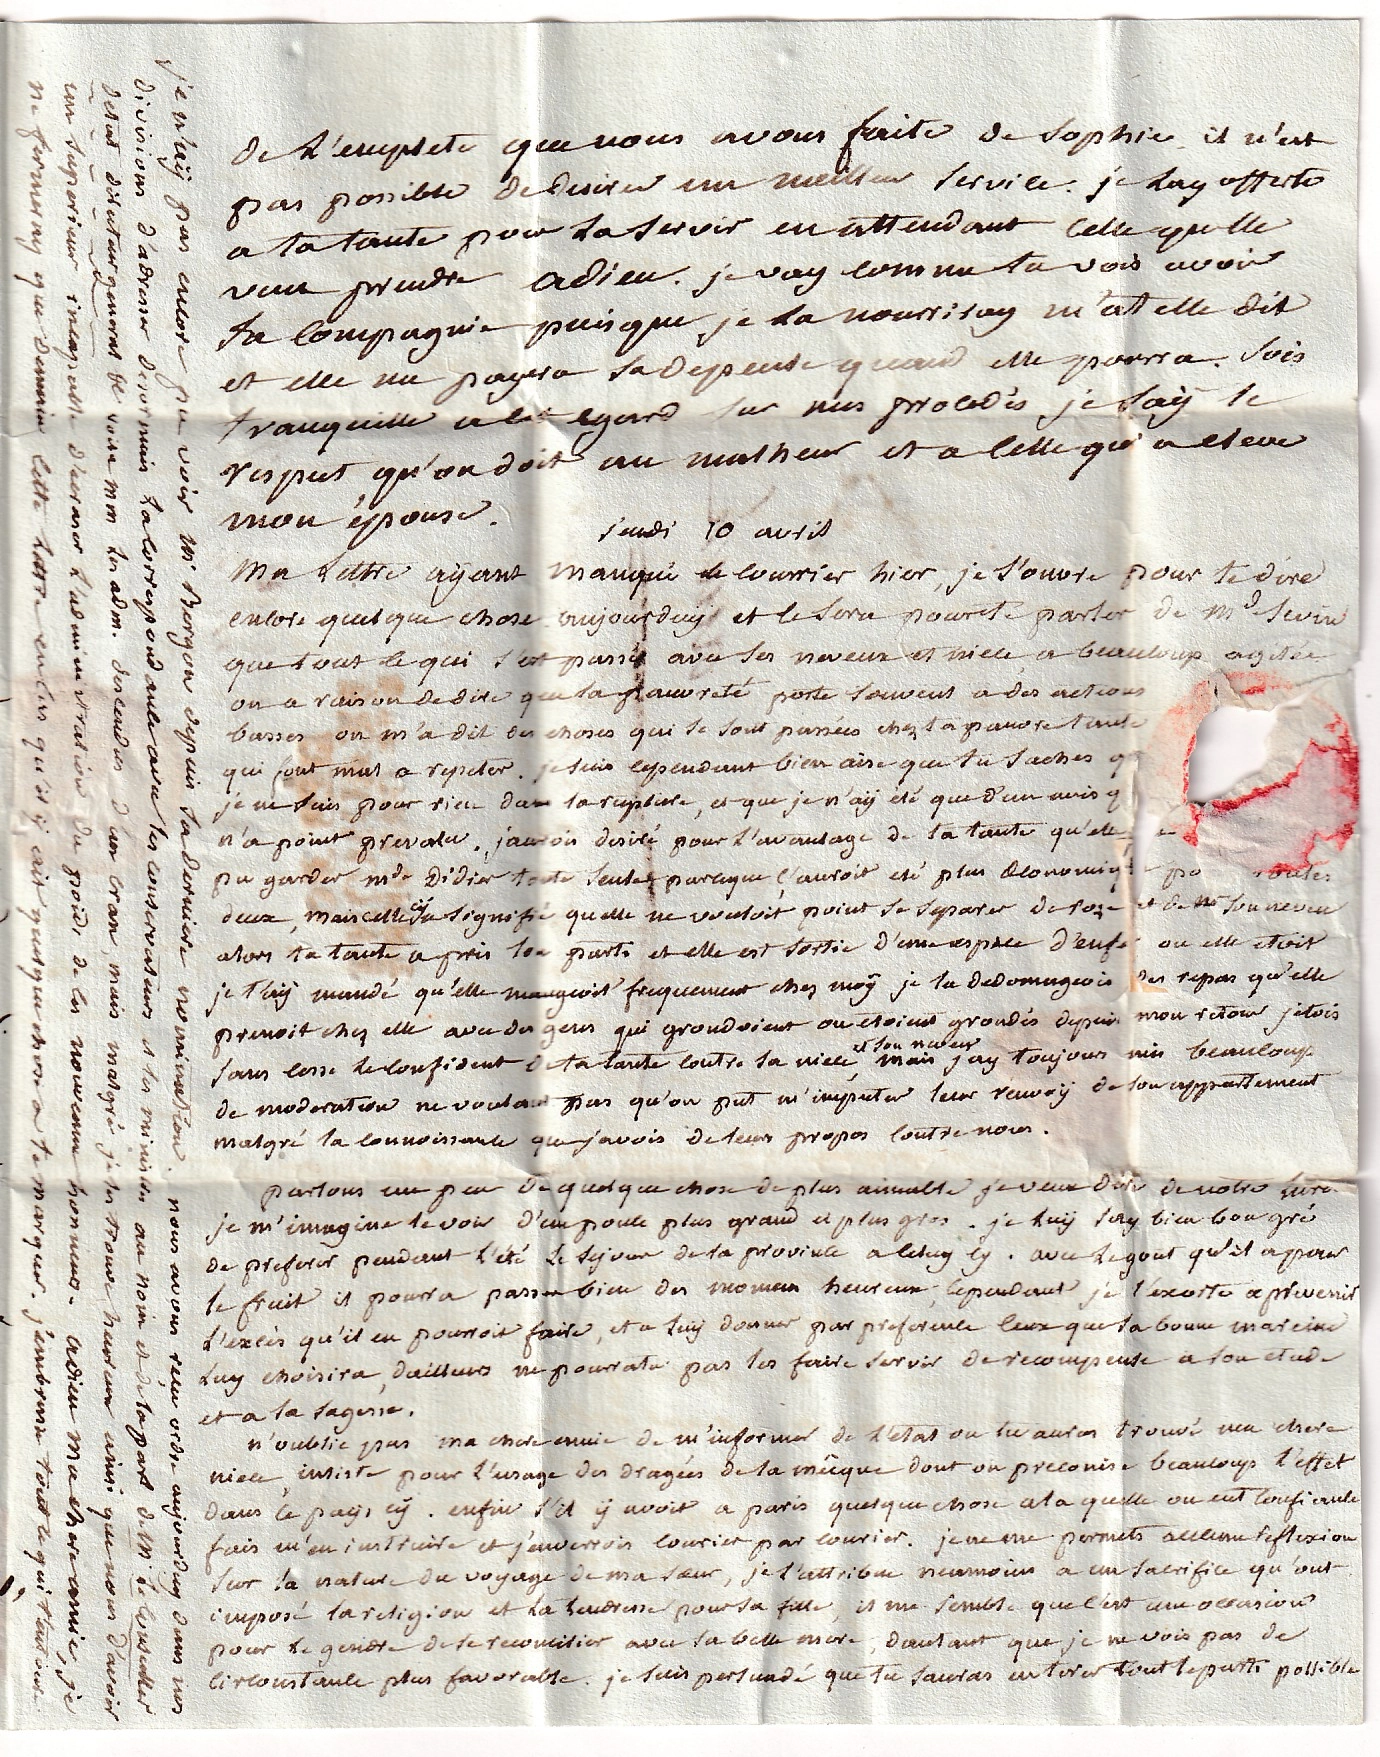 de l'emplete que nous avons faite de Sophie il n'est
pas possible de desirer un meilleur service. je l'ay offerte
a ta tante pour la servir en attendant celle qu'elle
veut prendre adieu. je vay comme tu vois avoir
sa compagnie puisque je la nourrisay m'at elle dit
et elle me payera sa depense quand elle pourra. sois
tranquille a cet egard sur mes procedés je saÿ le
respect qu'on doit au malheur et a celle qui a elevé
mon épouse.
jeudi 10 avril
Ma lettre aÿant manqué le courrier hier, je l'ouvre pour te dire
encore quelque chose aujourduÿ et ce sera pour te parler de Mde Sevin
que tout ce qui s'est passé avec ses neveux et niece a beaucoup agitée
on a raison de dire que la pauvreté porte souvent a des actions
basses on m'a dit des choses qui se sont passées chez ta pauvre tante
qui font mal a repeter. je suis cependant bien aise que tu saches
je ne suis pour rien dans la rupture, et que je n'aÿ été que d'un avis q
n'a point prevalu. j'aurois desiré pour l'avantage de ta tante qu'elle
pu garder mde Didier toute seule parceque c'auroit eté plus œconomiq po toutes
deux, mais celle cÿ a signifié quelle ne vouloit point se separer de roze et de son neveu
alors ta tante a pris son parti et elle est sortie d'une espece d'enfer ou elle etoit
je t'aÿ mandé qu'elle mangeoit frequemment chez moÿ je la dedomageois des repas qu'elle
prenoit chez elle avec des gens qui grondoient ou etoient grondés depuis mon retour j'etois
sans cesse le confident de ta tante contre sa niece et son neveu, mais j'ay toujours mis beaucoup
de moderation ne voulant pas qu'on put m'imputer leur renvoÿ de son appartement
malgré la connoissance que j'avois de leurs propos contre nous.
parlons un peu de quelque chose de plus aimable je veux dire de notre
je m'imagine le voir d'un poule plus grand et plus gros. je luÿ say bien bon gré
de preferer pendant l'été le sejour de la province a celuy cy. avec le gout qu'il a pour
le fruit il pourra passer bien des momens heureux, cependant je t'exorte a prevenir
l'excés qu'il en pourroit faire, et a luÿ donner par preference ceux que sa bonne maraine
luy choisira, dailleurs ne pourrate pas les faire servir de recompense a son etude
et a sa sagesse.
n'oublie pas ma chere amie de m'informer de l'etat ou tu auras trouvé ma chere
niece, insiste pour l'usage des dragées de la mecque dont on preconise beaucoup l'effet
dans ce paÿs cÿ. enfin s'il ÿ avoit a paris quelque chose a la quelle on eut confiance
fais m'en instruire et j'enverrois courier par courier. je ne me permets aucune reflexion
sur la nature du voyage de ma sœur, je l'attribue neanmoins a un sacrifice qu'ont
imposé la religion et la tendresse pour sa fille, il me semble que c'est une occasion
pour le gendre de se reconcilier avec sa belle mere, dautant que je ne vois pas de
circonstance plus favorable. je suis persuadé que tu sauras en tirer tout le parti possible
je n'aÿ pas encore pu voir Mr Bergon depuis sa derniere nomination. nous avons reçu ordre aujourduy dans nos
divisions d'adresser desormais la correspondance avec les conservateurs et les ministres au nom et de la part de M. le conseiller
detat directeur general de voila mm les adm. descendus d'un cran, mais malgré je les trouve heureux ainsi que nous d'avoir
un superieur incapable d'ecraser l'administration du poids de ses nouveaux honneurs. adieu ma chere amie, je
ne fermeray que demain cette lettre en cas qu'il ÿ ait quelque chose a te marquer. j'embrasse tout ce qui t'entoure.